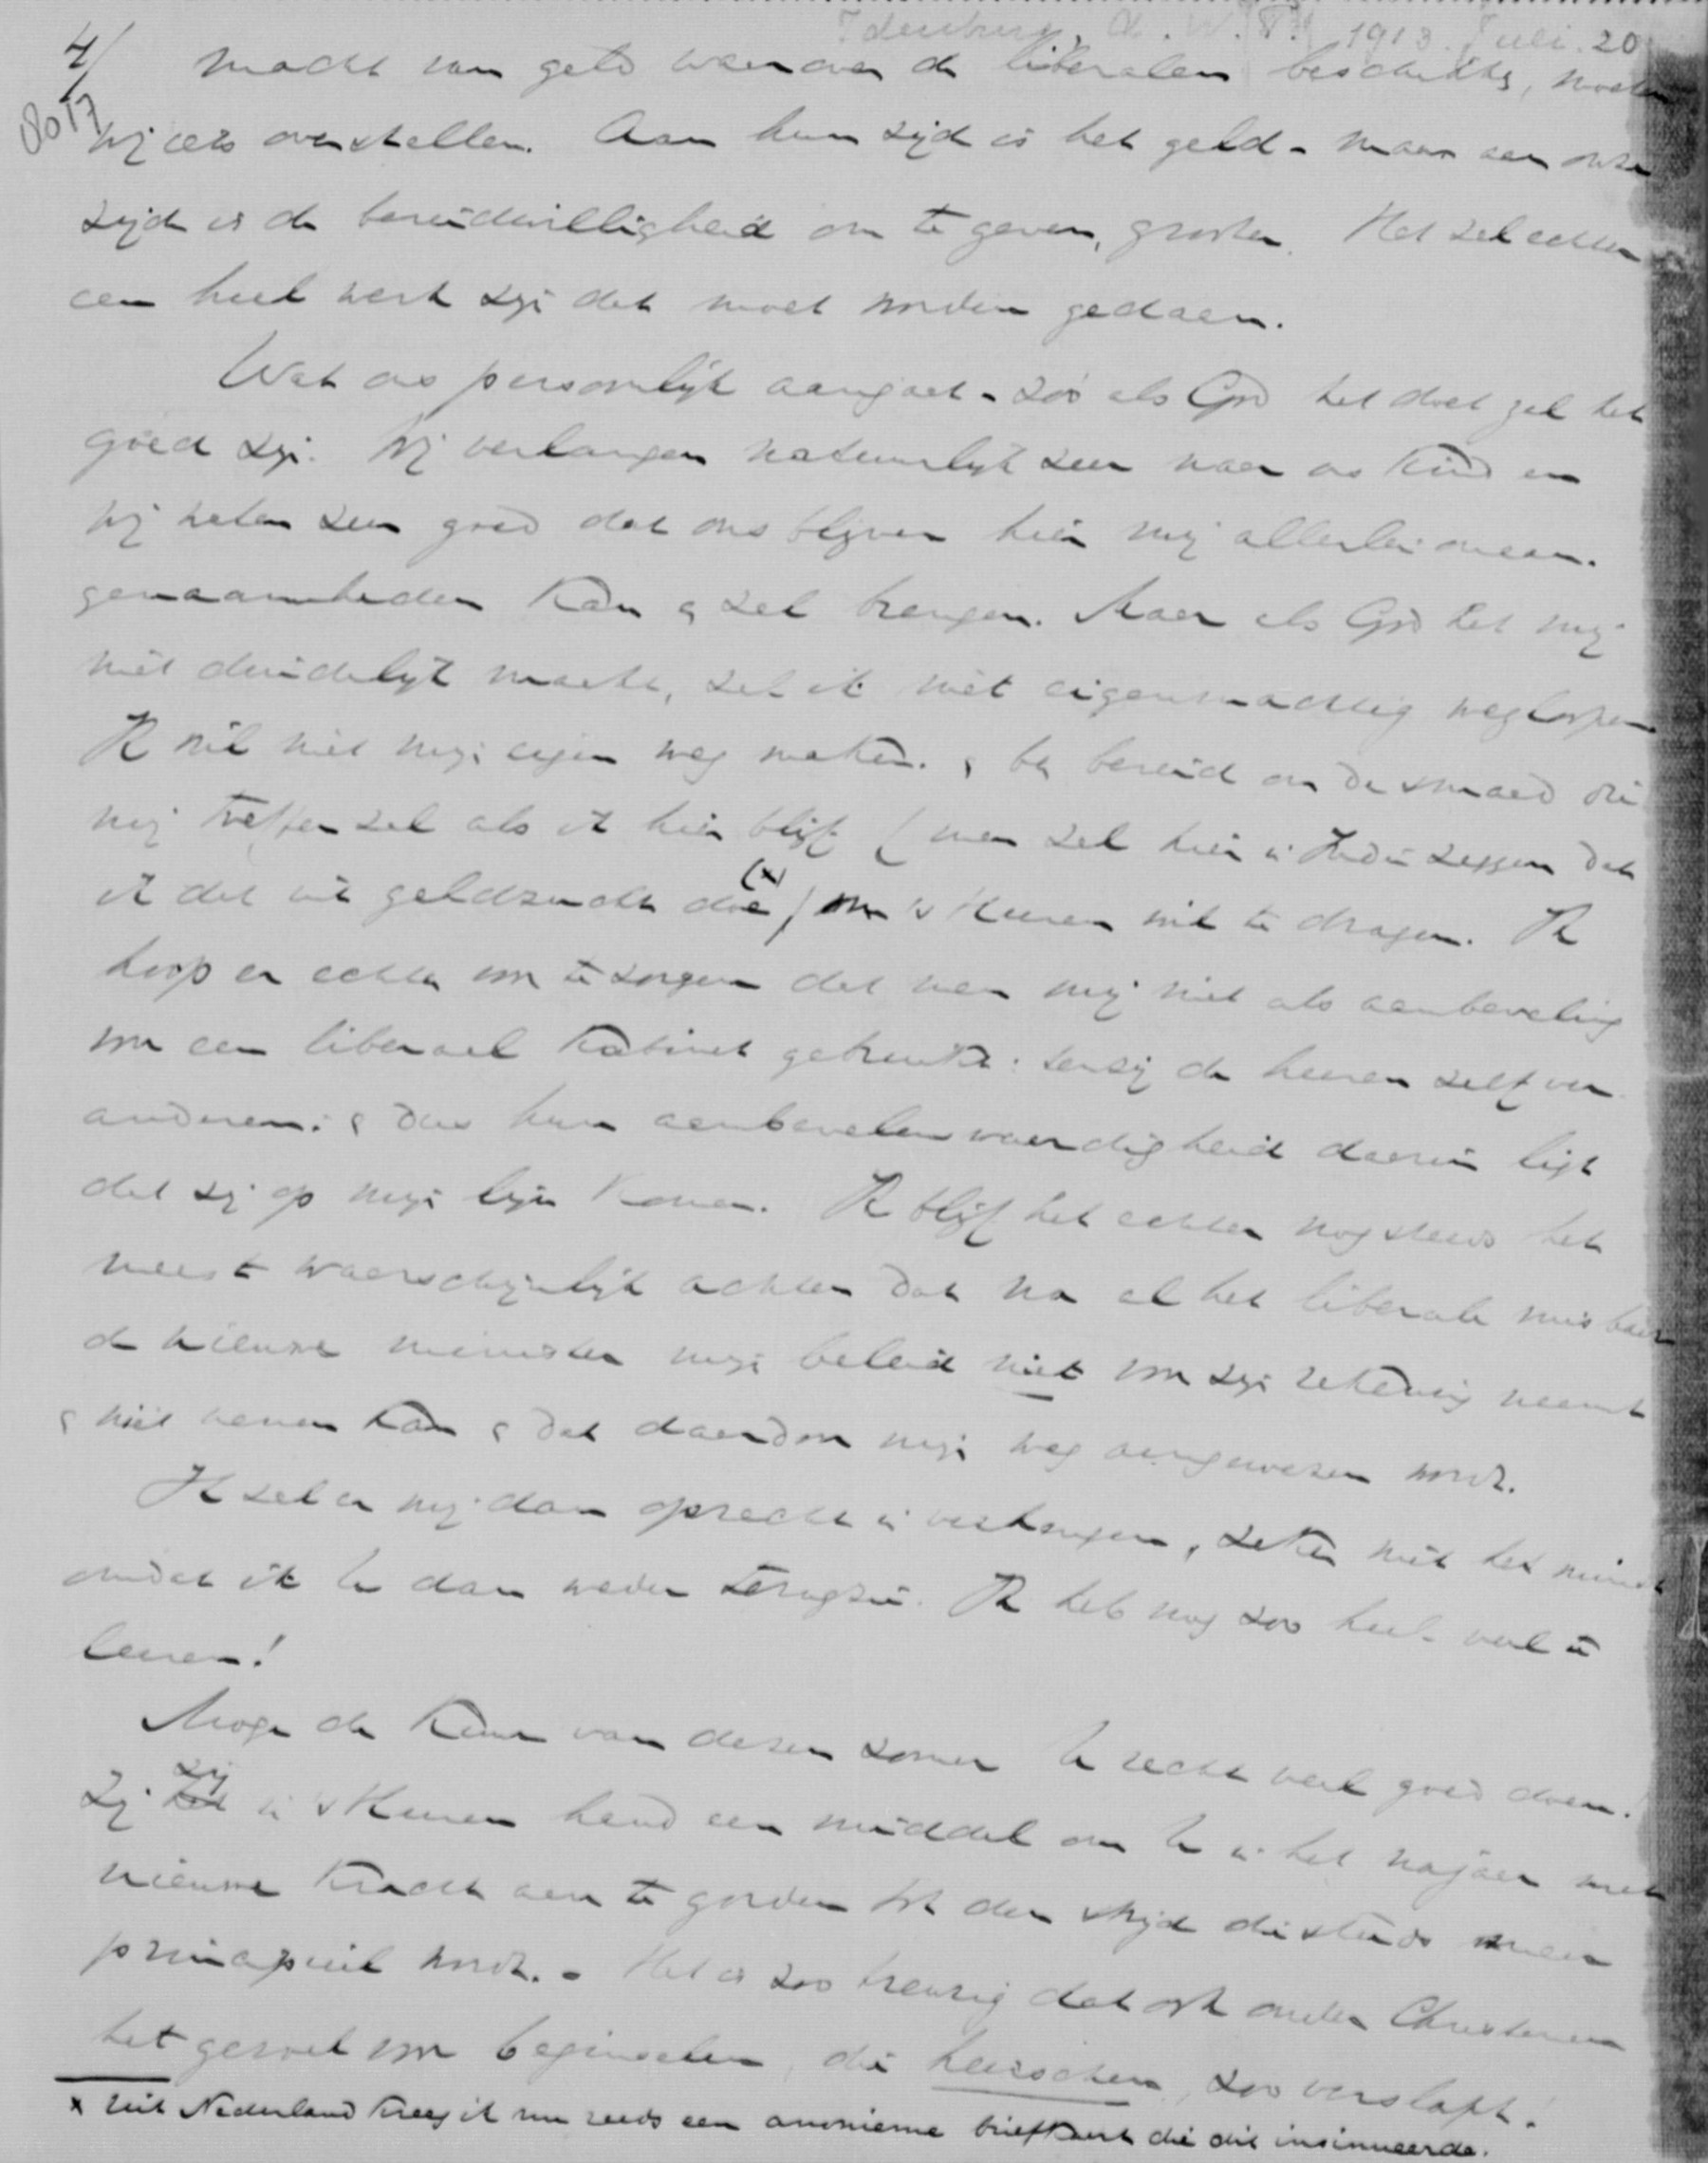 Idenburg, A. W. F. 1913. Juli. 20
4/ macht van geld waarover de liberalen beschikken, moeten
8017
wij iets overstellen. Aan hun zijde is het geld - maar aan onze
zijde is de bereidwilligheid om te geven, grooter. Het zal echter
een heel werk zijn dat moet worden gedaan.
Wat ons persoonlijk aangaat - zoo als God het doet zal het
goed zijn. Wij verlangen natuurlijk zeer naar ons kind en
wij weten zeer goed dat ons blijven hier mij allerlei onaan-
genaamheden kan & zal brengen. Maar als God het mij
niet duidelijk maakt, zal ik niet eigenmachtig wegloopen
Ik wil niet mijn eigen weg maken. & ben bereid om de smaad die
mij treffen zal als ik hier blijf (men zal hier in Indië zeggen dat
ik dat uit geldzucht doe (x) ) om 's Heeren wil te dragen. Ik
hoop er echter voor te zorgen dat men mij niet als aanbeveling
voor een liberaal Kabinet gebruikt: tenzij de heeren zelf ver-
anderen: & dus hun aanbevelenswaardigheid daarin ligt
dat zij op mijn lijn komen. Ik blijf het echter nog steeds het
meest waarschijnlijk achten dat na al het liberale misbaar
de nieuwe minister mijn beleid niet voor zijn rekening neemt
& niet nemen kan & dat daardoor mijn weg aangewezen wordt.
Ik zal er mij dan oprecht in verheugen, zeker niet het minst
omdat ik U dan weder terugzie. Ik heb nog zoo heel veel te
leeren!
Moge de Kuur van dezen zomer U recht veel goed doen!
Zij zij in 's Heeren hand een middel om U in het najaar met
nieuwe kracht aan te gorden tot den strijd die steeds meer
principieel wordt. - Het is zoo treurig dat ook onder Christenen
het gevoel voor beginselen, die heerschen, zoo verslapt!
x Uit Nederland kreeg ik nu reeds een anonieme briefkaart die dit insinueerde.